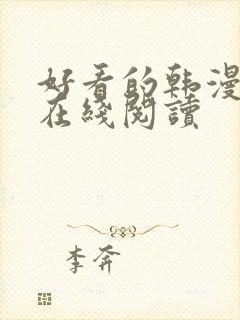 好看的韩漫
在綫閱讀
李奔